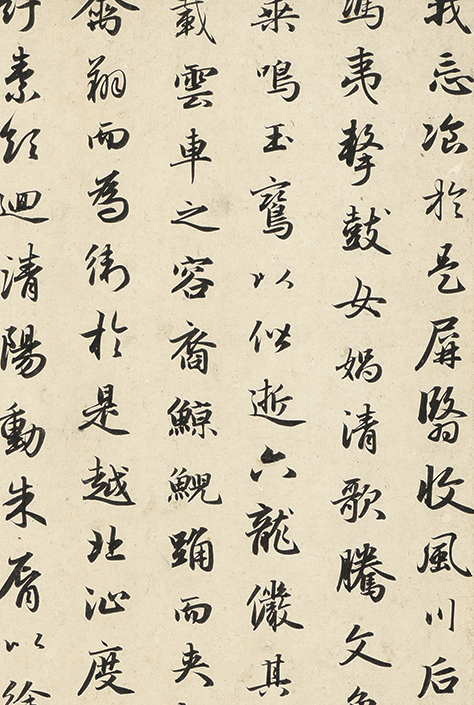 我忘飡於是屏翳收風川后
馮夷擊鼓女媧清歌騰文
乘鳴玉鸞以偕逝六龍儼其
載雲車之容裔鯨鯢踊而夾
禽翔而為衛於是越北沚度
紆素領迴清陽動朱脣以徐